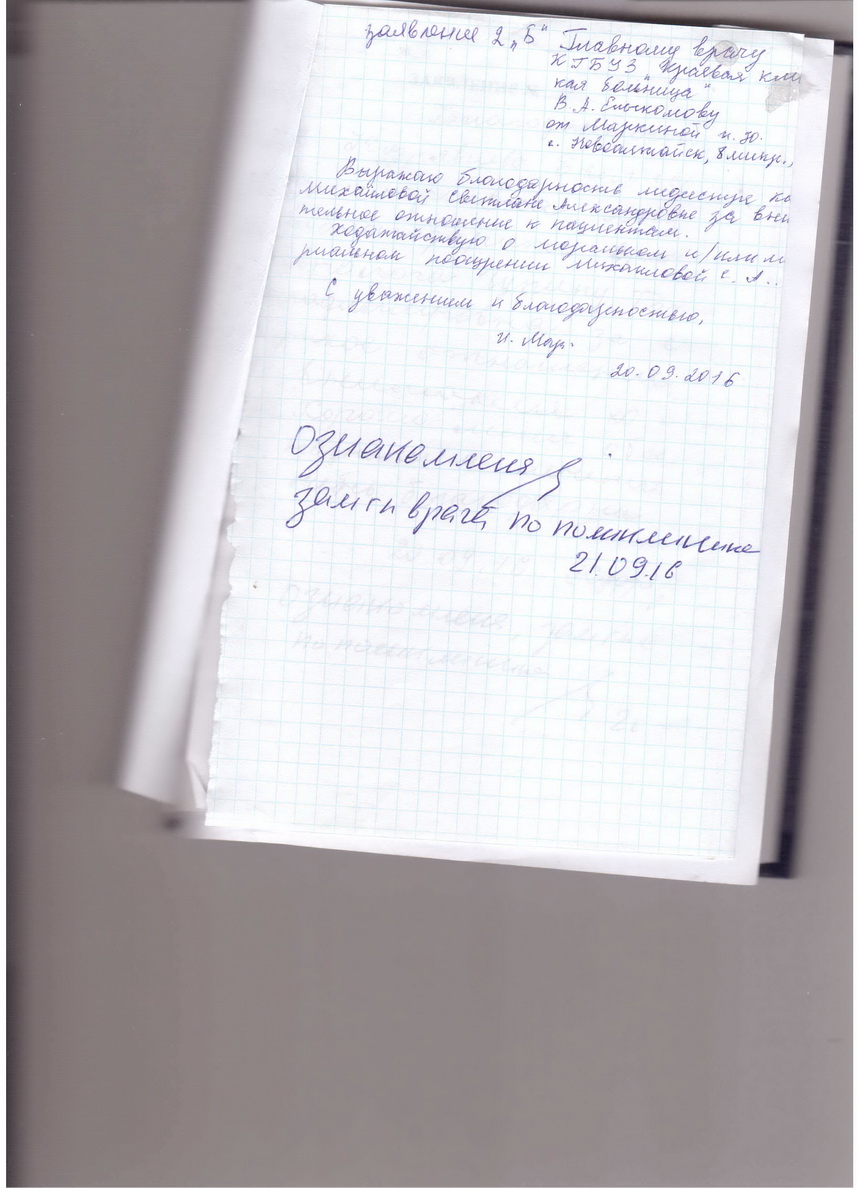 заявление 2 „Б“ Главному врачу
КГБУЗ "Краевая кли
кая больница"
В. А. Елыкомову
от Маркиной И. Ю.
г. Новоалтайск, 8 микр.,
Выражаю благодарность медсестре ка
Михайловой Светлане Александровне за вни
тельное отношение к пациентам.
Ходатайствую о моральном и/или м
риальном поощрении Михайловой С. А..
С уважением и благодарностью,
И. Мар.
20.09.2016
Ознакомлена
зам гл врача по поликлинике
21.09.16